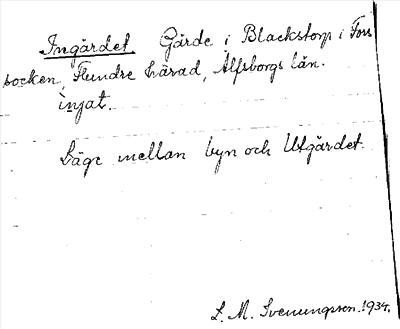 Ingärdet. Gärde i Blackstorp i Fors
socken, Flundre härad, Älfsborgs län.
injat.
Läge mellan byn och Utgärdet.
L. M. Svenungsson. 1934.